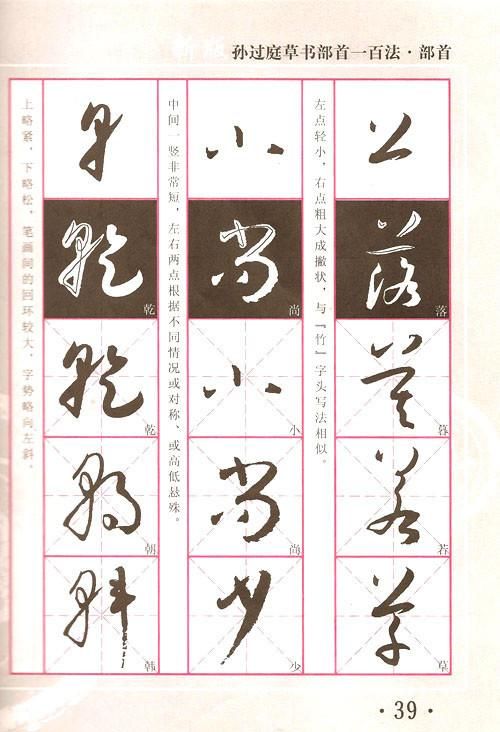 新版 孙过庭草书部首一百法·部首
左点轻小，右点粗大成撇状，与『竹』字头写法相似。
落
暮
若
草
中间一竖非常短，左右两点根据不同情况或对称、或高低悬殊。
尚
小
尚
少
上略紧，下略松，笔画间的回环较大，字势略向左斜。
乾
乾
朝
韩
·39·